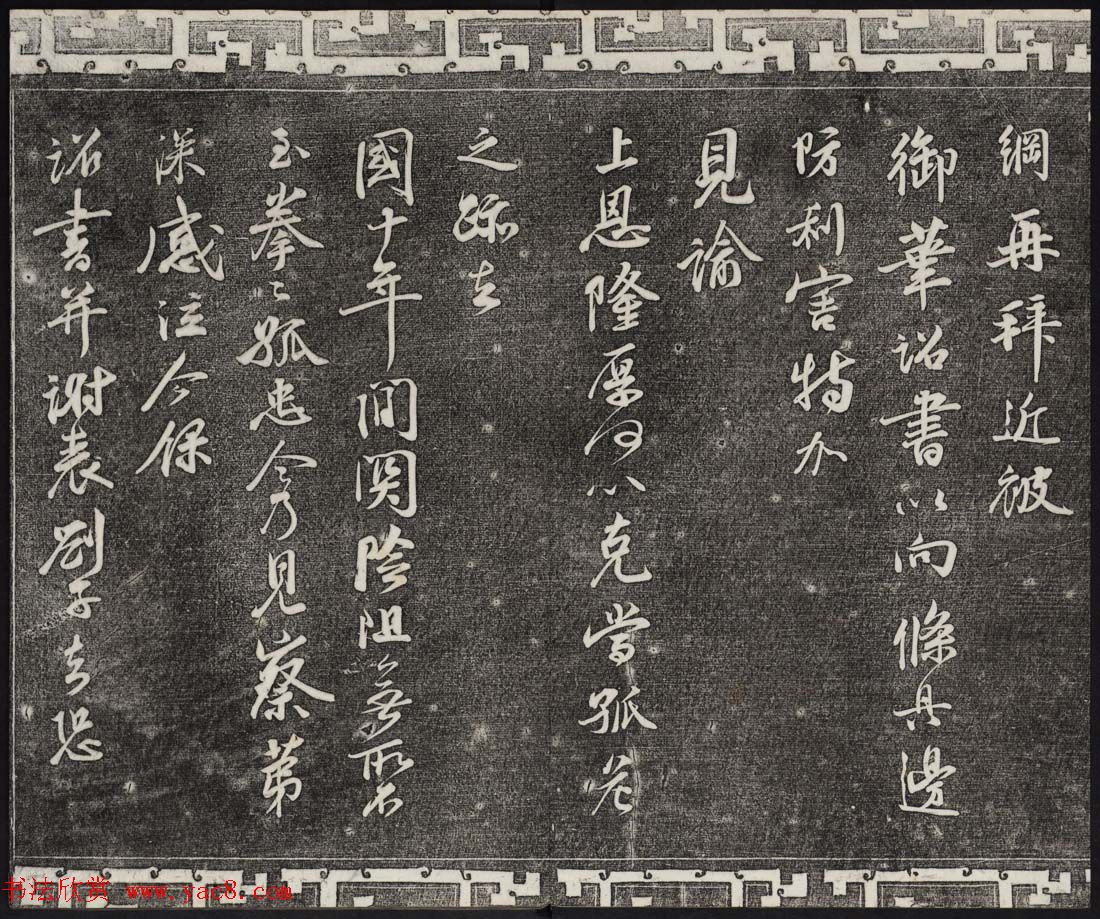 綱再拜近被
御筆詔書以向條具邊
防利害特加
見諭
上恩隆厚何以克當孤危
之跡去
國十年間關險阻無所不
至拳〻孤忠今乃見察第
深感泣今保
詔書并謝表劄子去恐
书法欣赏 www.yac8.com